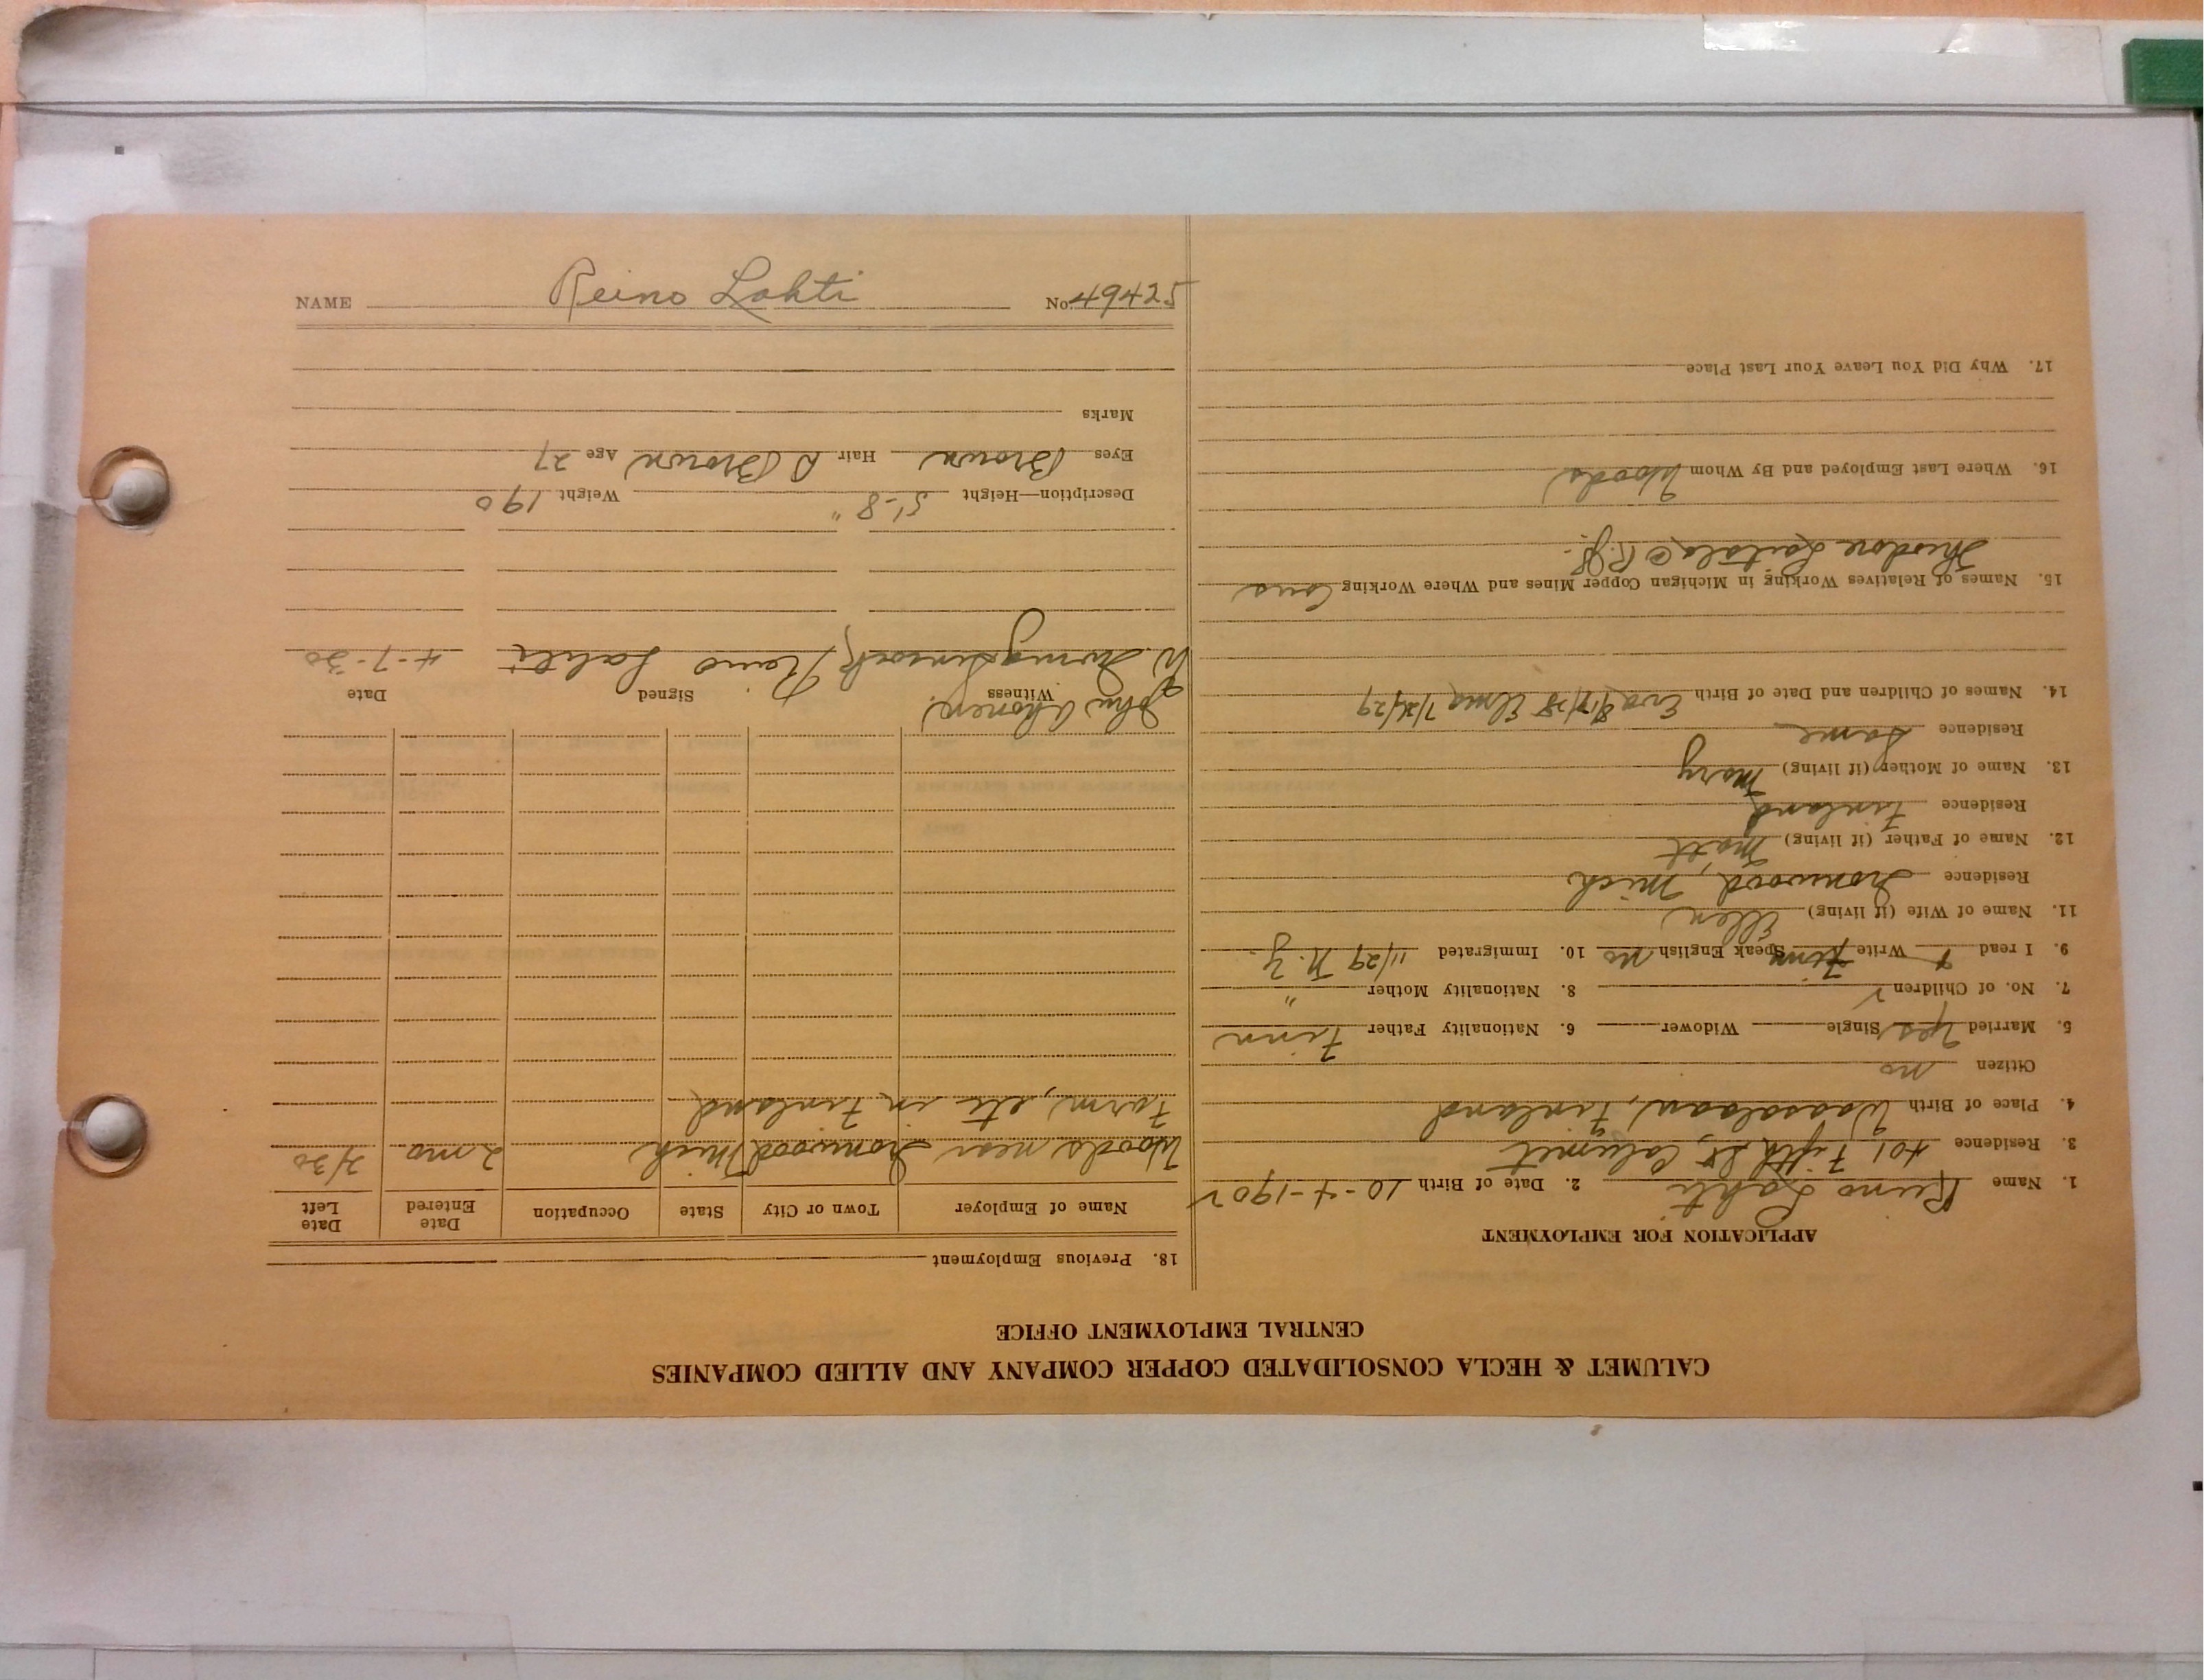 CALUMET & HECLA CONSOLIDATED COPPER COMPANY AND ALLIED COMPANIES
CENTRAL EMPLOYMENT OFFICE
APPLICATION FOR EMPLOYMENT
1. Name Reino Lahti 2. Date of Birth 10-4-1902
3. Residence 401 Fifth St Calumet
4. Place of Birth Finland
Citizen no
5. Married yes Single Widower 6. Nationality Father Finn
7. No. of Children 2 8. Nationality Mother "
9. I read + Write Finn Speak English no 10. Immigrated 11/29 N.Y.
11. Name of Wife (if living) Ellen
Residence Ironwood, Mich
12. Name of Father (if living) Matt
Residence Finland
13. Name of Mother (if living) Mary
Residence Same
14. Names of Children and Date of Birth Eva 8/17/28 Elma 7/26/29
15. Names of Relatives Working in Michigan Copper Mines and Where Working Cous
Theodore
16. Where Last Employed and By Whom Woods
17. Why Did You Leave Your Last Place
18. Previous Employment
Name of Employer Town or City State Occupation Date Entered Date Left
Woods near Ironwood Mich 2 mo 2/30
Farm, etc in Finland
John Ahonen
Witness Signed Date
Reino Lahti 4-7-30
Description—Height 5'-8" Weight 190
Eyes Brown Hair D Brown Age 27
Marks
NAME Reino Lahti No. 49425